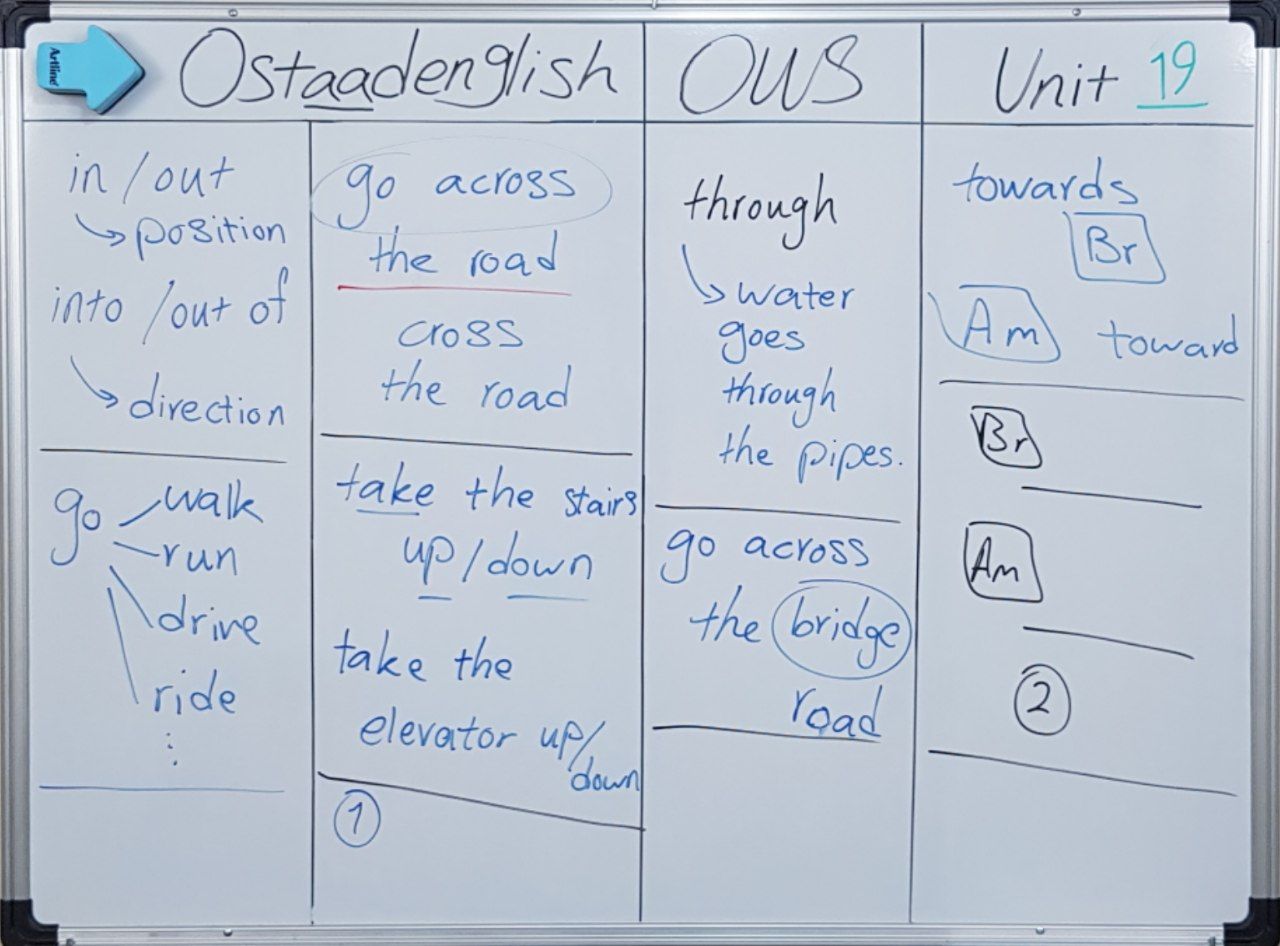 Artline
Ostaadenglish
OWS
Unit 19
in / out
position
into / out of
direction
go
walk
run
drive
ride
go across
the road
cross
the road
take the stairs
up / down
take the
elevator up/
down
1
through
water
goes
through
the pipes.
go across
the bridge
road
towards
Br
Am toward
Br
Am
2